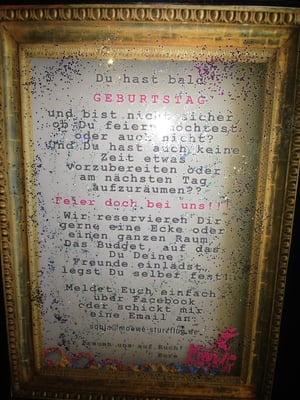 Du hast bald
GEBURTSTAG
und bist nicht sicher
ob Du feiern möchtest
oder auch nicht?
Und Du hast auch keine
Zeit etwas
vorzubereiten oder
am nächsten Tag
aufzuräumen??
Feier doch bei uns!!!
Wir reservieren Dir
gerne eine Ecke oder
einen ganzen Raum.
Das Budget, auf das
Du Deine
Freunde einlädst,
legst Du selber fest!
Meldet Euch einfach
über Facebook
oder schickt mir
eine Email an:
@moewe-sturzflug.de
Freuen uns auf Euch!
Eure